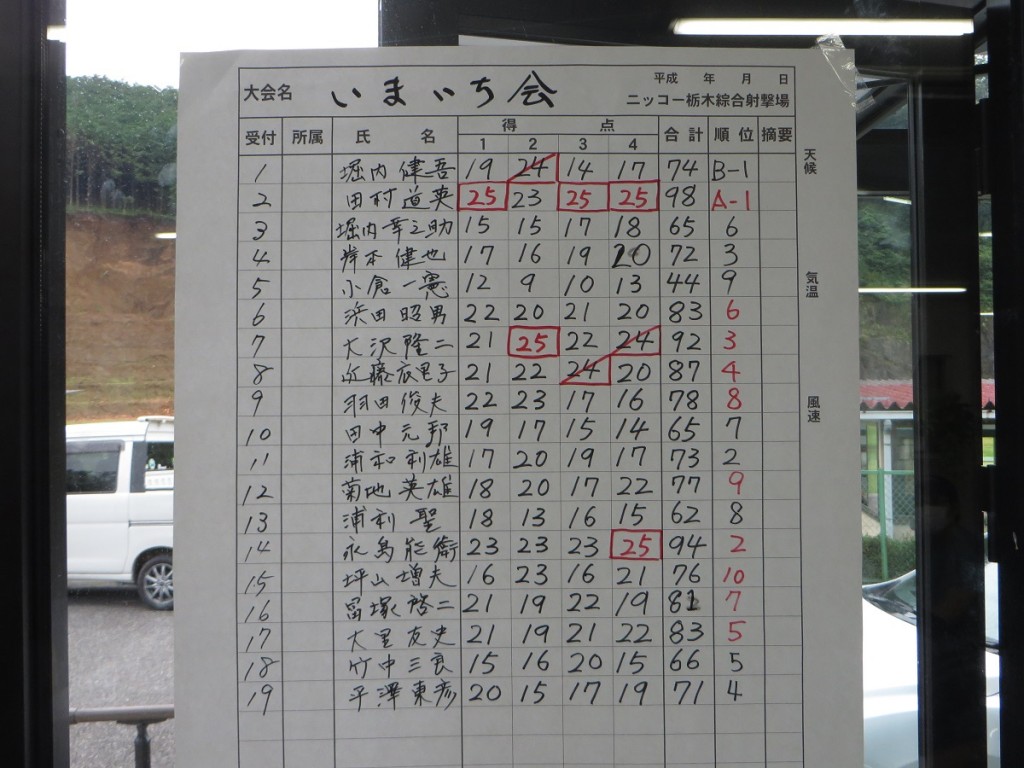 大会名 いまいち会 平成 年 月 日
ニッコー栃木綜合射撃場
受付 所属 氏 名 得 点 合計 順位 摘要
1 2 3 4
1 堀内健吾 19 24 14 17 74 B-1
2 田村道英 25 23 25 25 98 A-1
3 堀内幸之助 15 15 17 18 65 6
4 岸本健也 17 16 19 20 72 3
5 小倉一憲 12 9 10 13 44 9
6 浜田昭男 22 20 21 20 83 6
7 大沢隆二 21 25 22 24 92 3
8 近藤衣里子 21 22 24 20 87 4
9 羽田俊夫 22 23 17 16 78 8
10 田中元邦 19 17 15 14 65 7
11 浦和利雄 17 20 19 17 73 2
12 菊地英雄 18 20 17 22 77 9
13 浦利聖 18 13 16 15 62 8
14 永島能衛 23 23 23 25 94 2
15 坪山増夫 16 23 16 21 76 10
16 冨塚隆二 21 19 22 19 81 7
17 大里友史 21 19 21 22 83 5
18 竹中三良 15 16 20 15 66 5
19 平澤東彦 20 15 17 19 71 4
天候
気温
風速